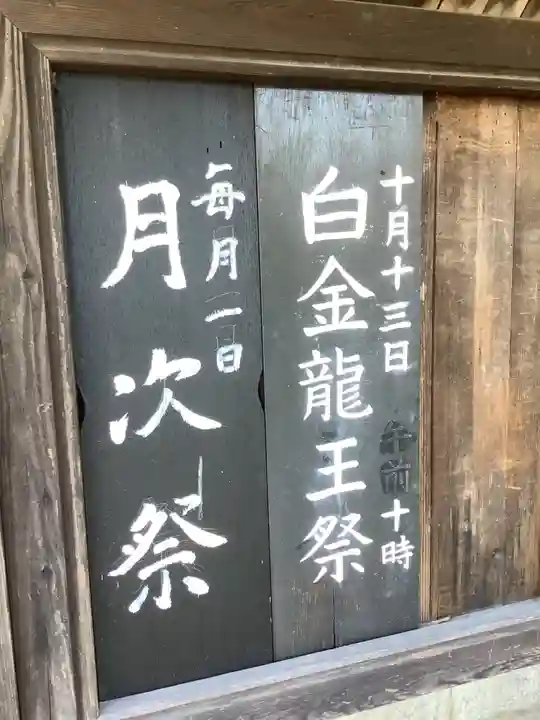 十月十三日 午前十時
白金龍王祭
毎月一日
月次祭